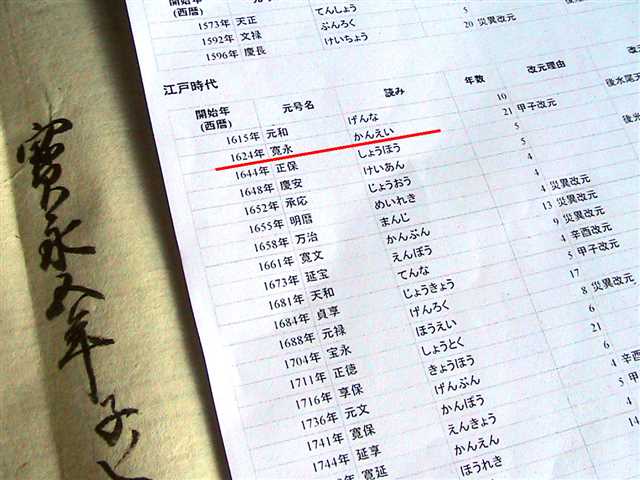 1573年 天正 てんしょう
1592年 文禄 ぶんろく 5
1596年 慶長 けいちょう 20 災異改元
江戸時代
開始年 (西暦) 元号名 読み 年数 改元理由
1615年 元和 げんな 10 後水尾天
1624年 寛永 かんえい 21 甲子改元
1644年 正保 しょうほう 5 後光
1648年 慶安 けいあん 5
1652年 承応 じょうおう 4
1655年 明暦 めいれき 4
1658年 万治 まんじ 4 災異改元
1661年 寛文 かんぶん 13 災異改元
1673年 延宝 えんぽう 9 災異改元
1681年 天和 てんな 4 辛酉改元
1684年 貞享 じょうきょう 5 甲子改元
1688年 元禄 げんろく 17
1704年 宝永 ほうえい 8 災異改元
1711年 正徳 しょうとく 6
1716年 享保 きょうほう 21
1736年 元文 げんぶん 6
1741年 寛保 かんぽう 4 辛酉
1744年 延享 えんきょう 5 甲
寛延 かんえん 4
ほうれき 14
寳永五年子